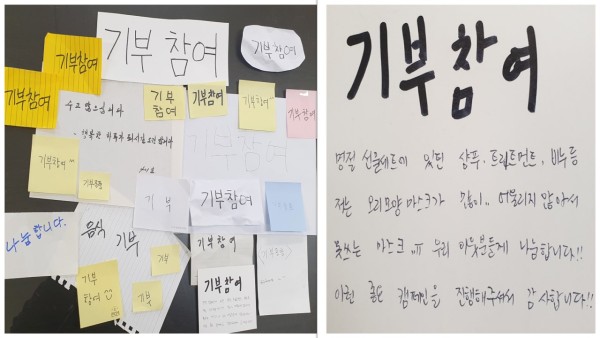 기부 참여
기부참여
기부참여
기부참여
기부
참여
기부참여
기부참여
기부참여
수고 많으십니다
기부참여
기부참여
기부물품
기부
기부참여
나눔합니다.
음식
기부
기부참여
기부
기부
참여
기부
기부참여
기부 참여
명절 선물세트에 있던 샴푸, 트리트먼트, 비누 등
저는 오리모양 마스크가 많이.. 어울리지 않아서
못쓰는 마스크.. ㅠ 우리 이웃분들께 나눔합니다!!
이런 좋은 캠페인을 진행해주셔서 감사합니다!!